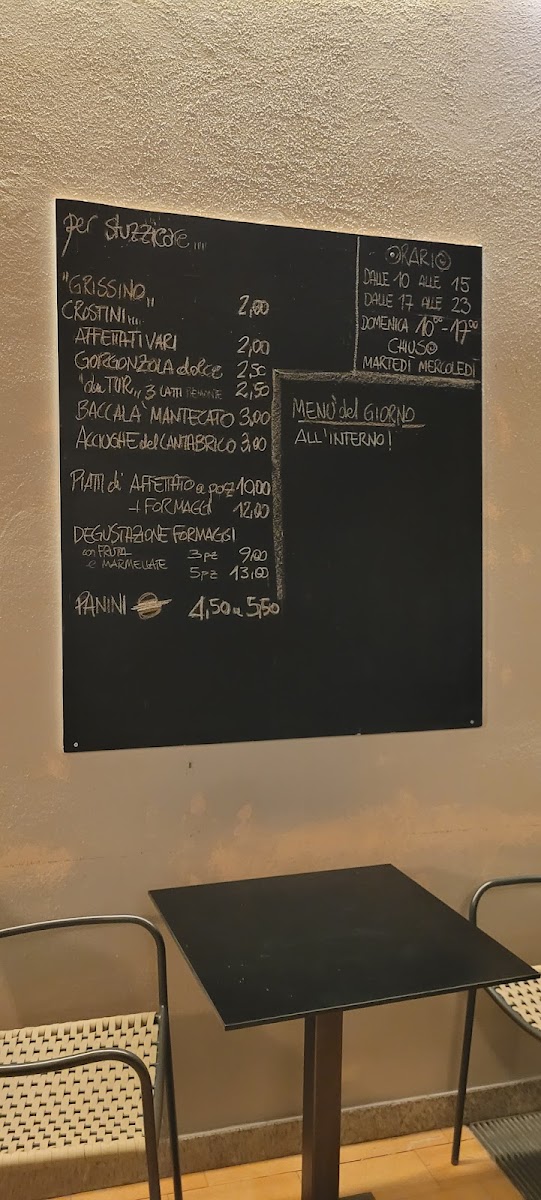 per stuzzicare....
"GRISSINO"
CROSTINI.... 2,00
AFFETTATI VARI 2,00
GORGONZOLA dolce 2,50
"du TUR" 3 LATTI PIEMONTE 2,50
BACCALA' MANTECATO 3,00
ACCIUGHE del CANTABRICO 3,00
PIATTI di AFFETTATO 10,00
+ FORMAGGI 12,00
DEGUSTAZIONE FORMAGGI
con FRUTTA 3 pz 9,00
e MARMELLATE
5 pz 13,00
PANINI 4,50 a 5,50
ORARIO
DALLE 10 ALLE 15
DALLE 17 ALLE 23
DOMENICA 10⁰⁰-17⁰⁰
CHIUSO
MARTEDÌ MERCOLEDÌ
MENU' del GIORNO
ALL'INTERNO!